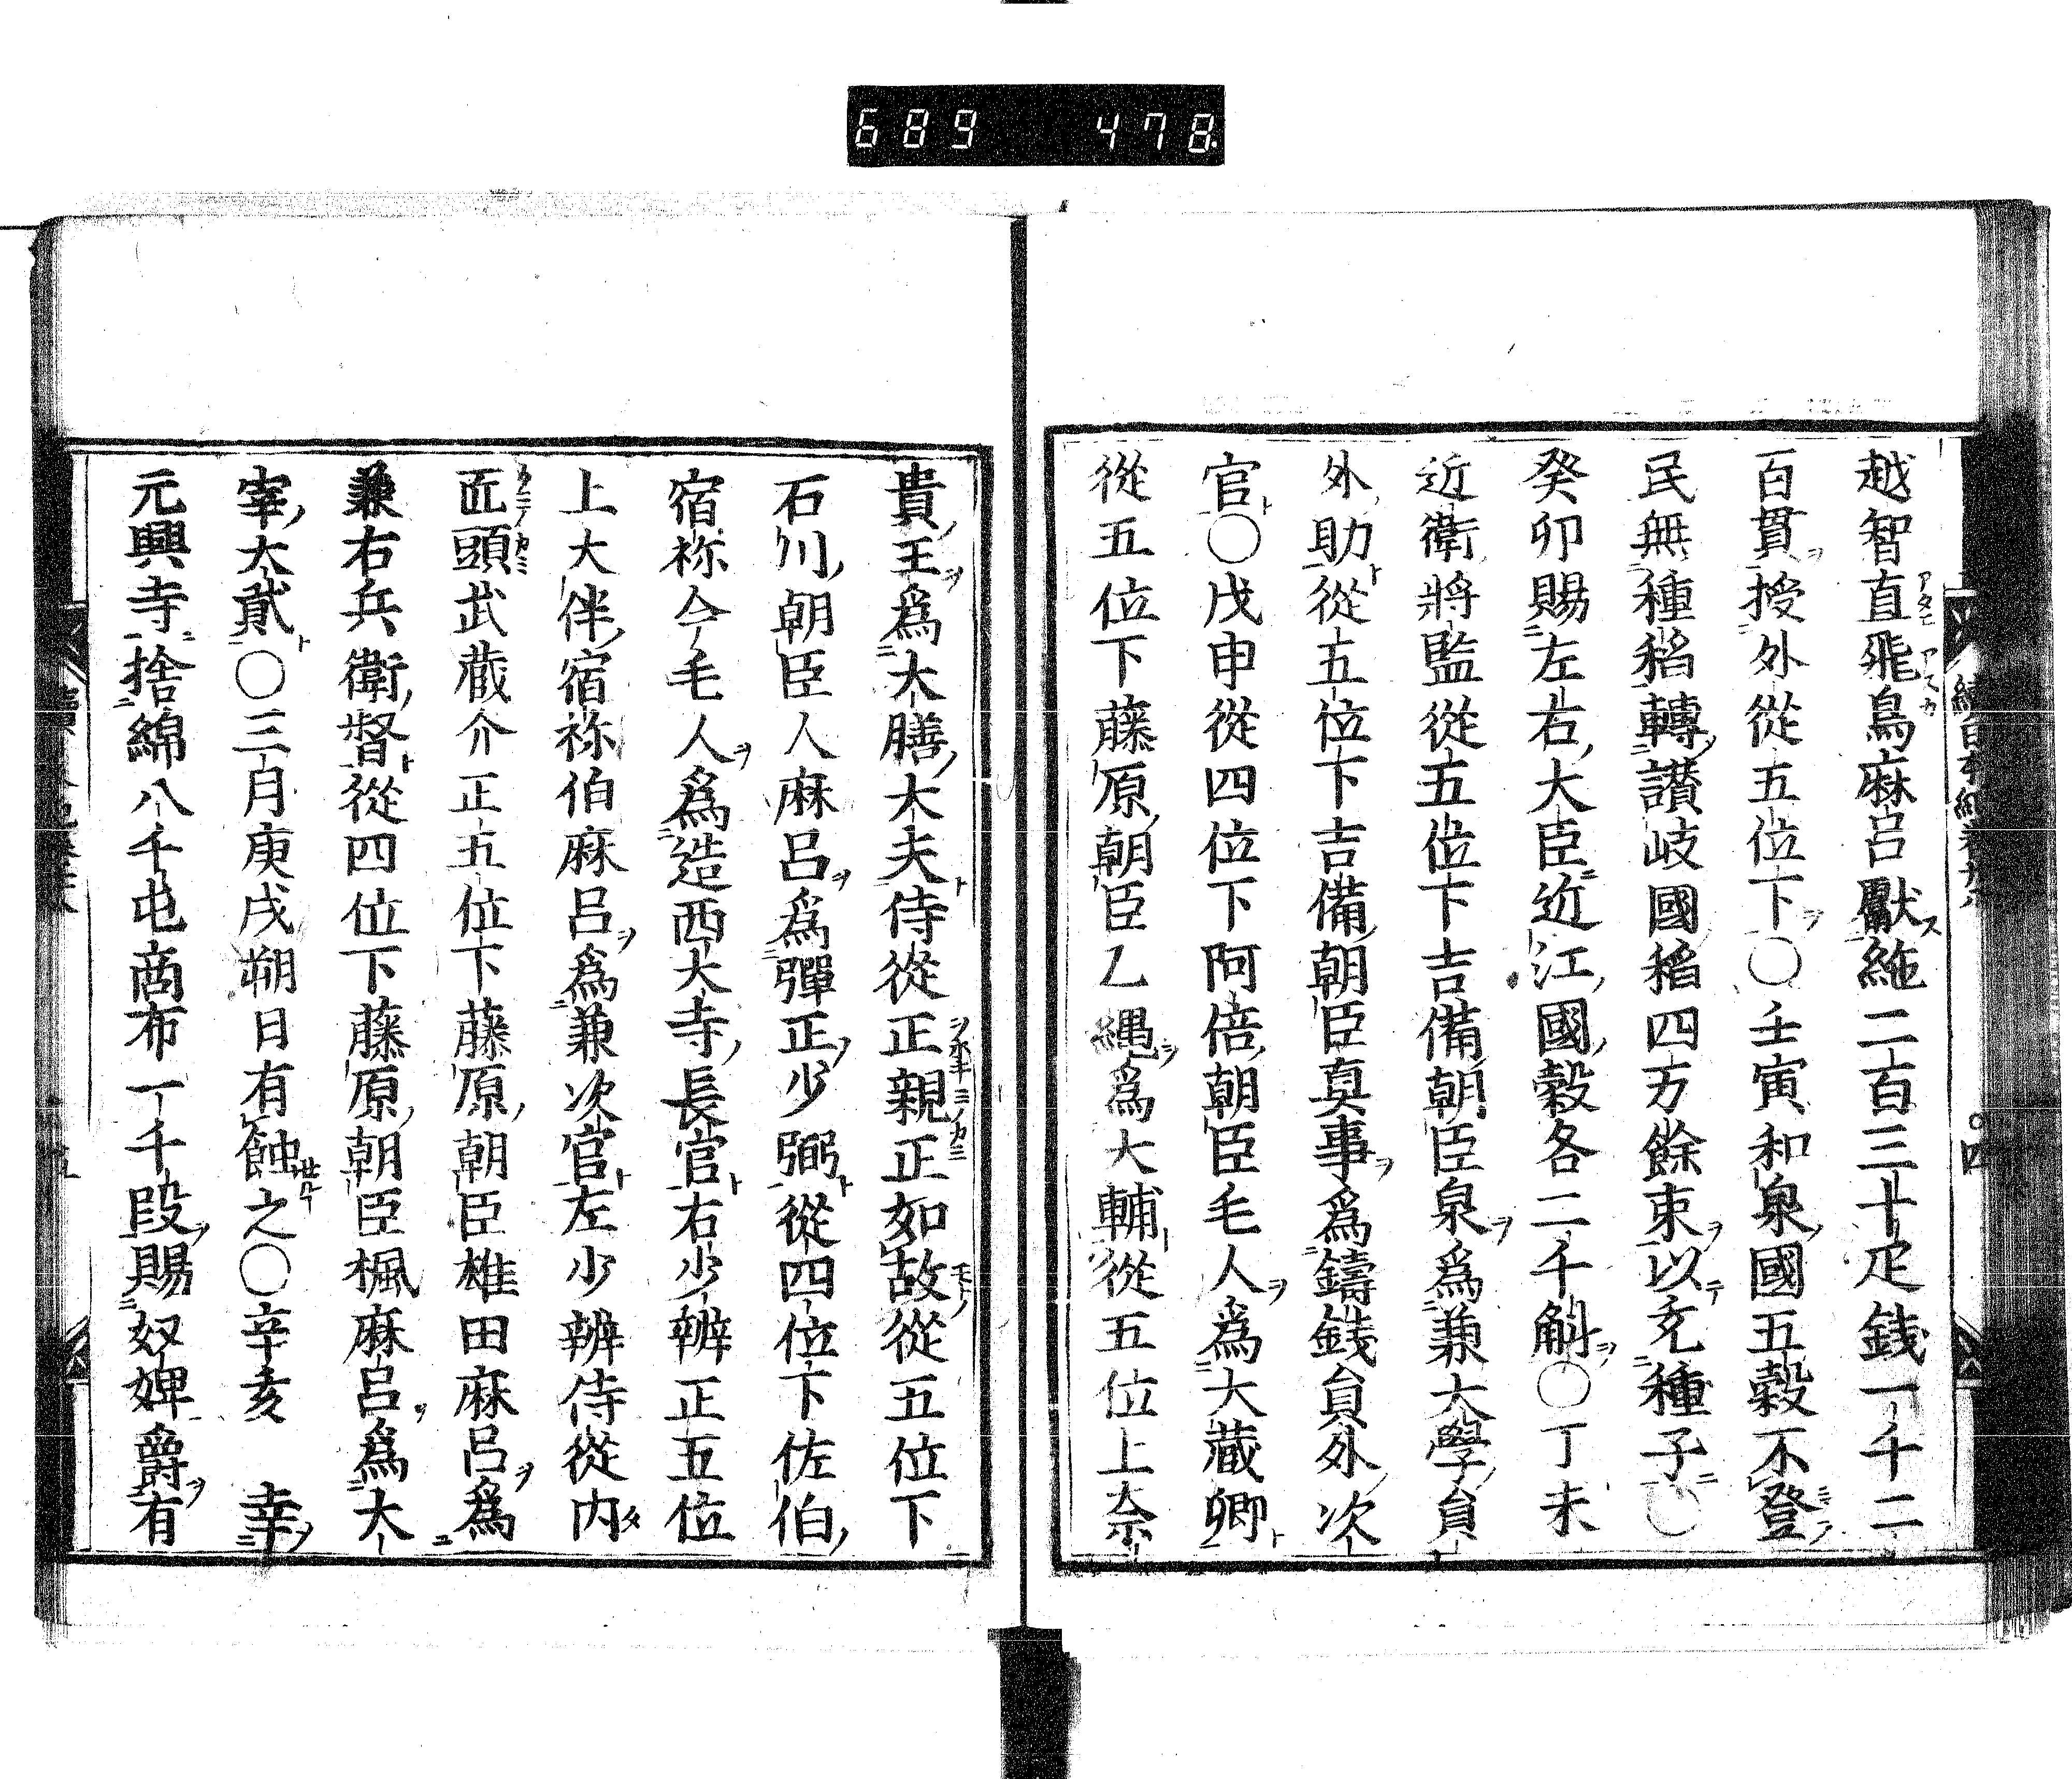 689 478
越智直飛鳥麻呂獻絁二百三十疋錢一千二
百貫授外從五位下○壬寅和泉國五穀不登
民無種稻轉讃岐國稻四万餘束以充種子○
癸卯賜左右大臣近江國穀各二千斛○丁未
近衛將監從五位下吉備朝臣泉爲兼大學員
外助從五位下吉備朝臣真事爲鑄錢員外次
官○戊申從四位下阿倍朝臣毛人爲大藏卿
從五位下藤原朝臣乙縄爲大輔從五位上奈
貴王爲大膳大夫侍從正親正如故從五位下
石川朝臣人麻呂爲彈正少弼從四位下佐伯
宿祢今毛人爲造西大寺長官右少辨正五位
上大伴宿祢伯麻呂爲兼次官左少辨侍從内
匠頭武藏介正五位下藤原朝臣雄田麻呂爲
兼右兵衛督從四位下藤原朝臣楓麻呂爲大
宰大貳○三月庚戌朔日有蝕之○辛亥　幸
元興寺捨綿八千屯商布一千段賜奴婢爵有